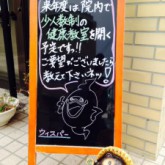 来年度は、院内で
少人数制の
健康教室を開く
予定ですっ!!
ご要望がございましたら
教えて下さいネッ!
ウィスパー